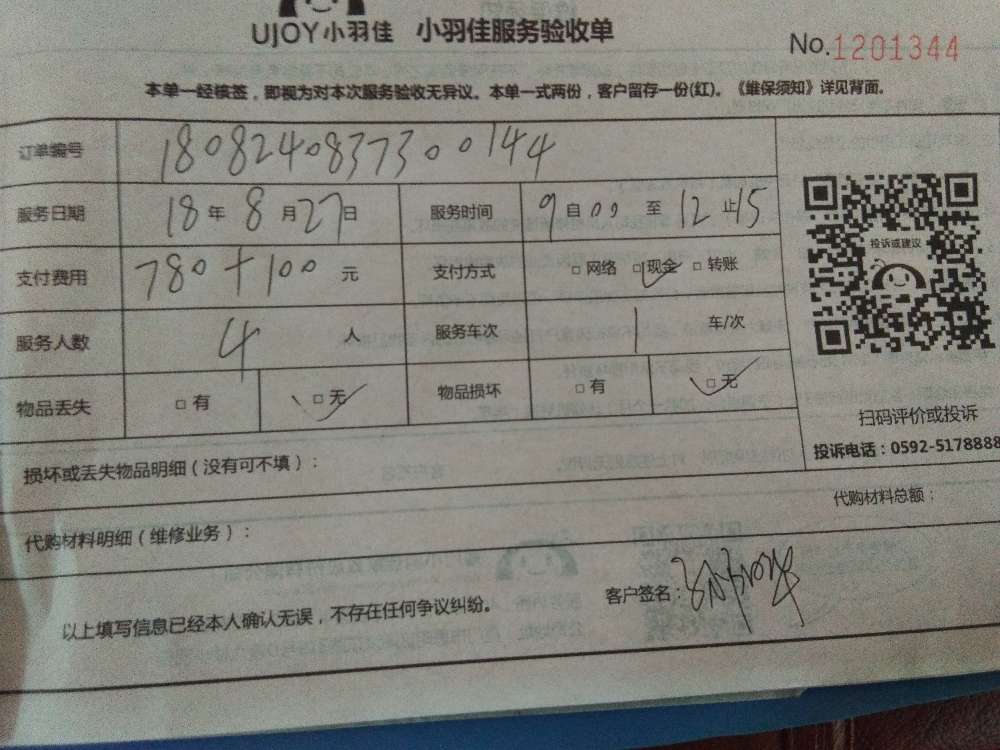 UJOY小羽佳 小羽佳服务验收单
No.1201344
本单一经核签，即视为对本次服务验收无异议。本单一式两份，客户留存一份(红)。《维保须知》详见背面。
订单编号 180824083730 0144
服务日期 18年8月27日 服务时间 9自00至12止15
支付费用 780+100元 支付方式 □网络 □现金 □转账
服务人数 4人 服务车次 1车/次
物品丢失 □有 □无 物品损坏 □有 □无
投诉或建议
扫码评价或投诉
投诉电话：0592-5178888
损坏或丢失物品明细（没有可不填）：
代购材料明细（维修业务）：
代购材料总额：
以上填写信息已经本人确认无误，不存在任何争议纠纷。
客户签名：